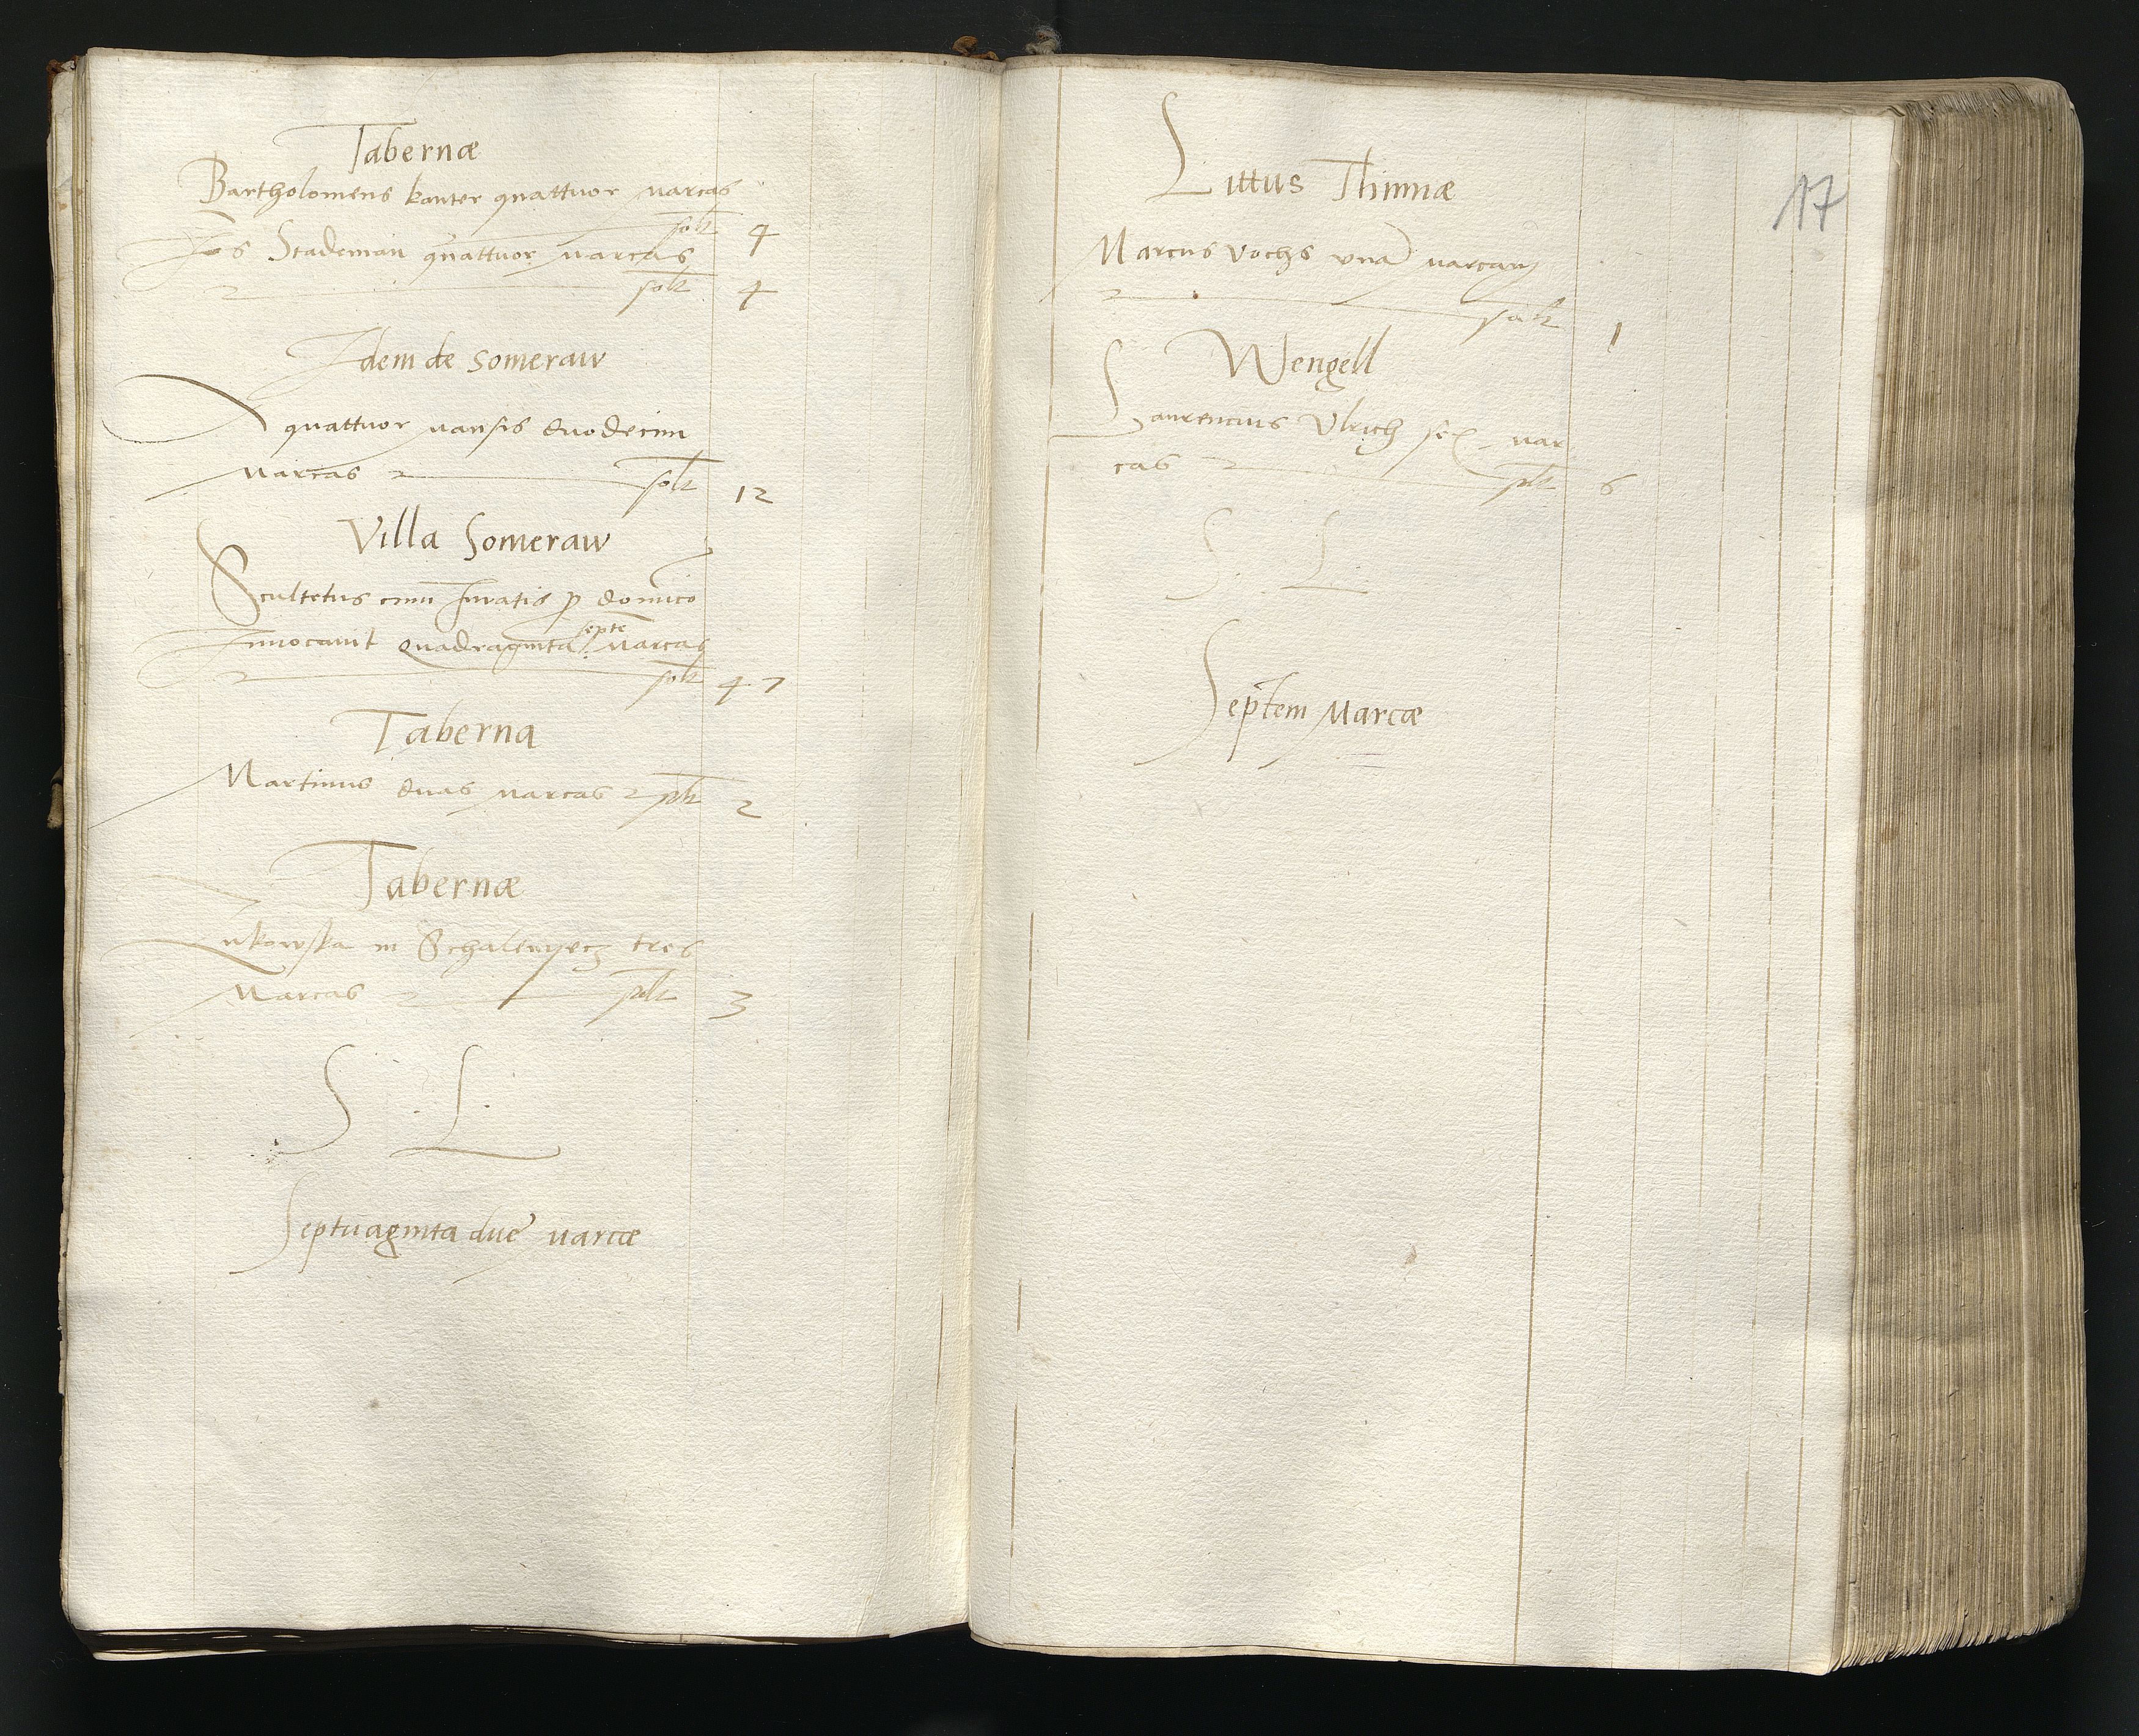 Tabernæ
Bartholomeus kanter quattuor marcas
solt 4
Jos Stademan quattuor marcas
solt 4
Idem de Someraw
A quattuor mansis duodecim
marcas solt 12
Villa Someraw
Scultetus cum Juratis p domico
Innocauit quadraginta septe marcas
solt 47
Taberna
Martinus duas marcas solt 2
Tabernæ
Zukowska in Schalmyecz tres
Marcas solt 3
S. L.
Septuaginta due marcæ
17
Littus Thimnæ
Marcus Vochs vna marcam
solt 1
Wengell
Laurencius Vlrich sex mar
cas solt 6
S. L.
Septem Marcæ